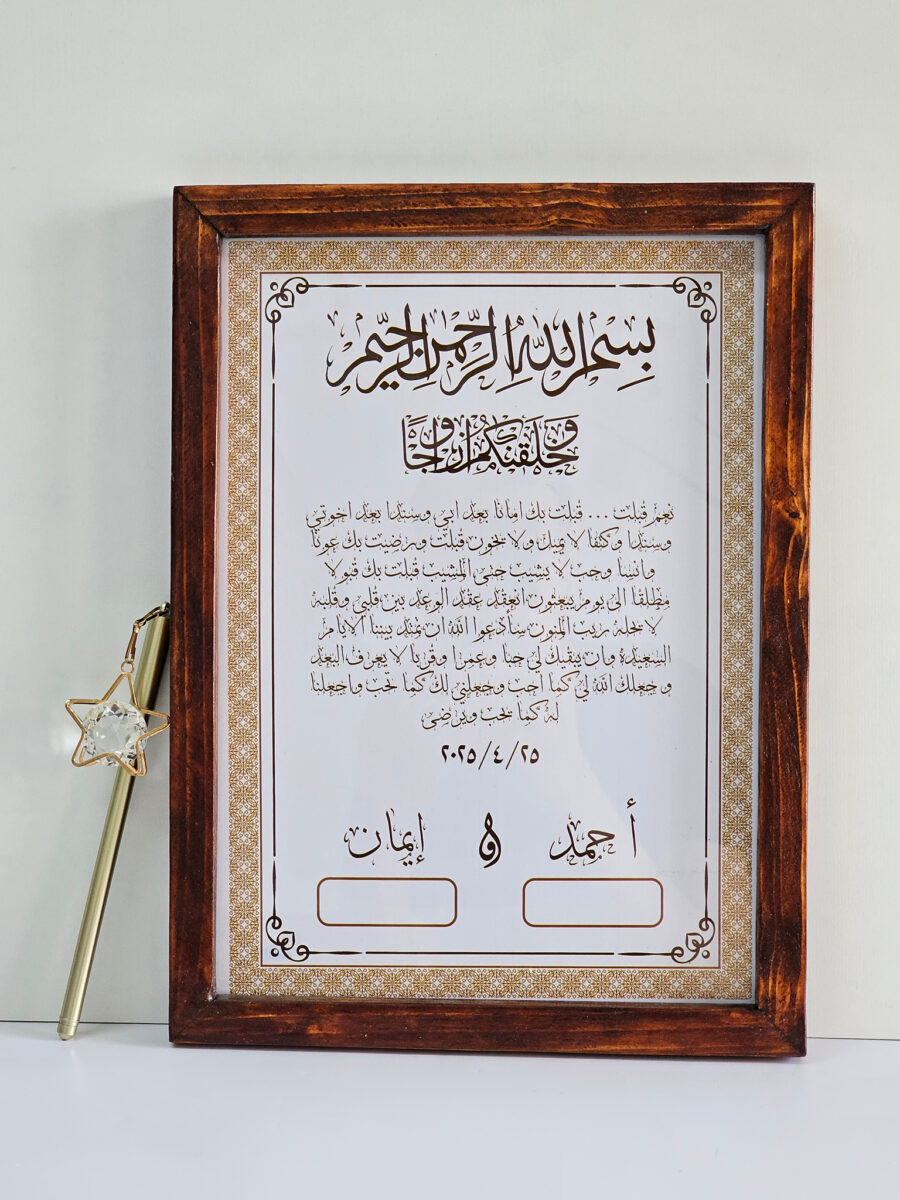 بِسْمِ اللَّهِ الرَّحْمَنِ الرَّحِيمِ
وَخَلَقْنَكُمْ أَزْوَاجًا
نعم قبلت ... قبلت بك امانا بعد ابي وسندا بعد اخوتي
وسندا وكتفا لا يميل ولا يخون قبلت ورضيت بك عونا
وانسا وحب لا يشيب حتى المشيب قبلت بك قبولا
مطلقا الى يوم يبعثون انعقد عقد الوعد بين قلبي وقلبه
لا يحله ريب المنون سأدعوا الله ان تمتد بيننا الايام
السعيدة وان يبقيك لي حبا وعمرا وقربا لا يعرف البعد
وجعلك الله لي كما احب وجعلني لك كما تحب واجعلنا
له كما يحب ويرضى
٢٠٢٥/٤/٢٥
أحمد و إيمان